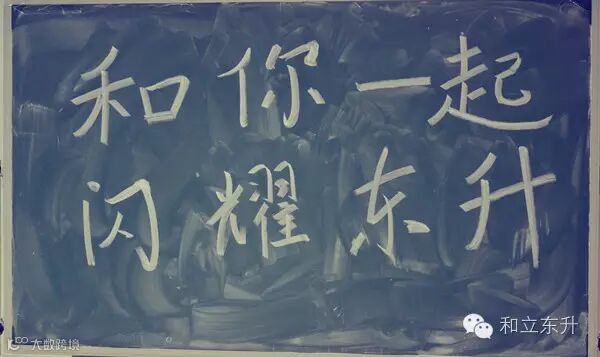 和你一起
闪耀东升
和立东升
大数跨境